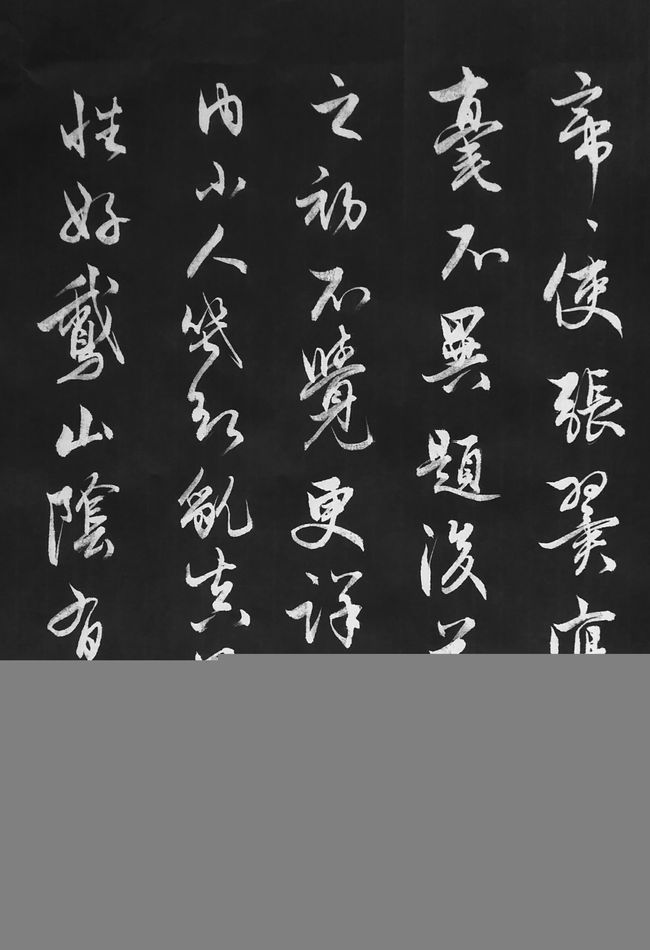 帝帝使張翼寫
毫不異題後
之初不覺更詳
内小人幾欲亂真
性好鵝山陰有